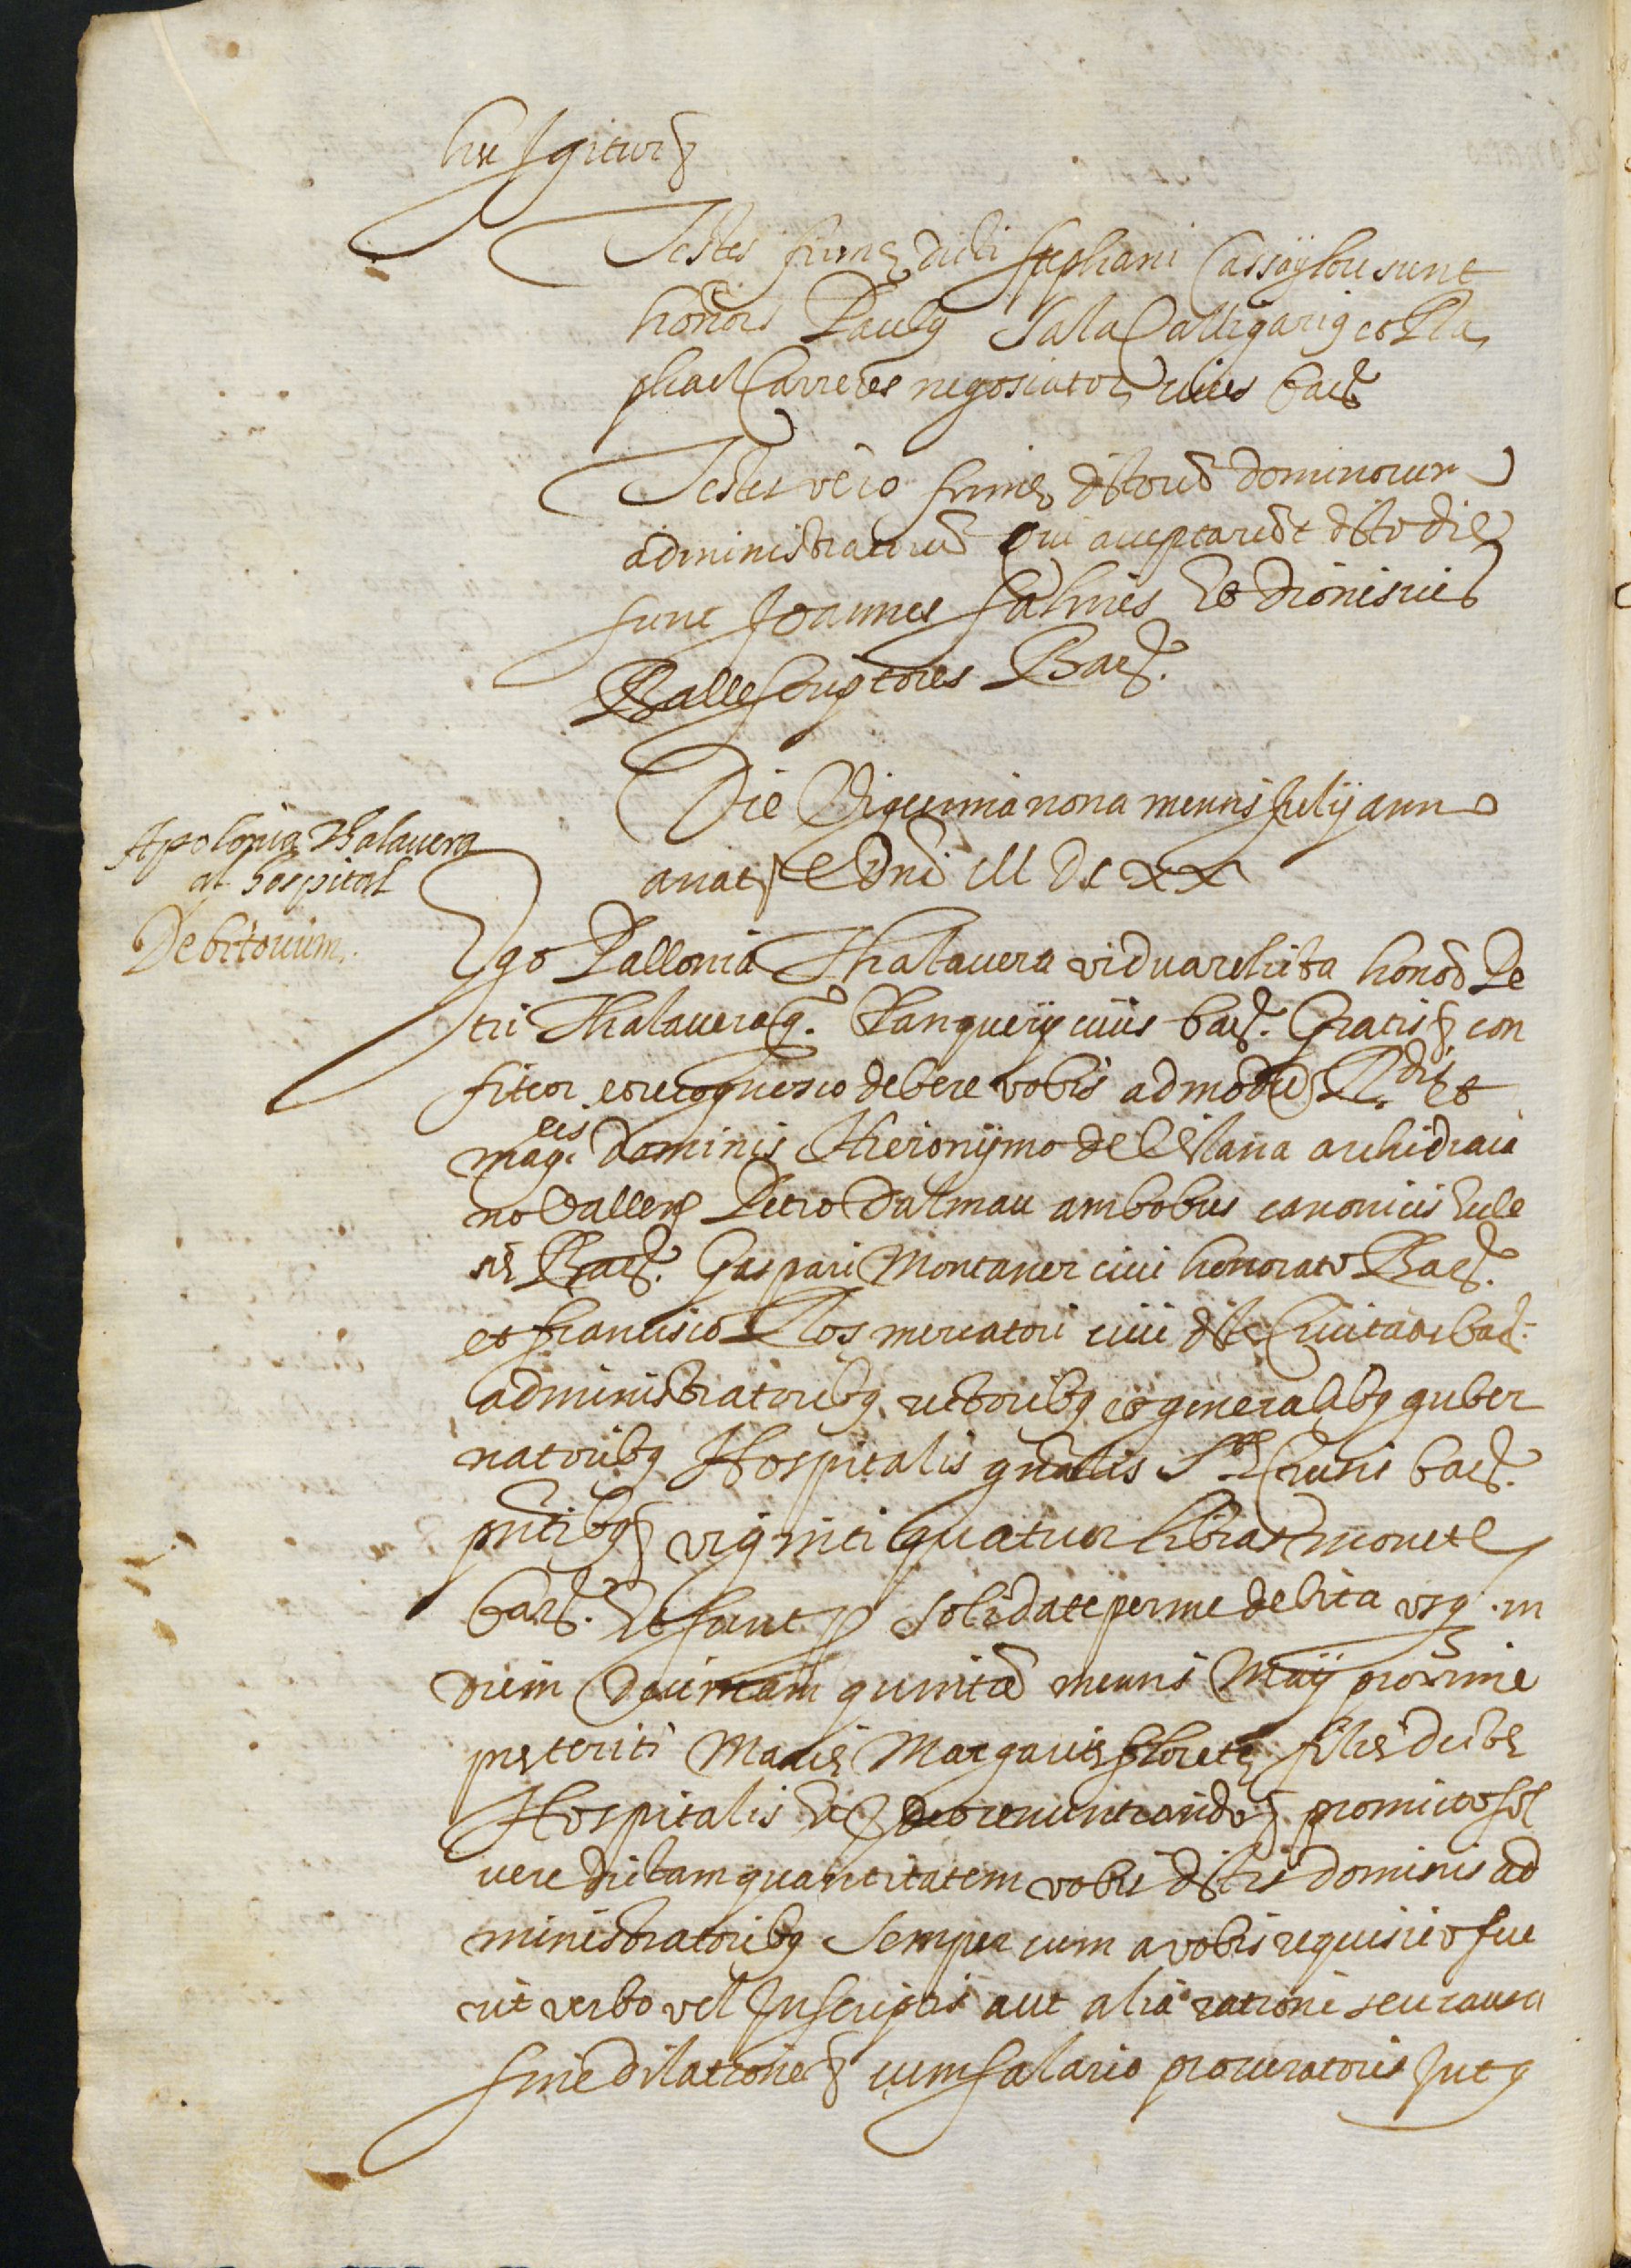 hec Igitur &
Testes firme dicti stephani Cassaÿlou sunt
honor. Paulus Sala Calligarius et Ra
phael Carreres negosiator cives barª
Testes vero firme dictorũ dominorum
administratorũ qui acceptarũt dicto die
sunt Joannes salines et dionisius
Balle scriptores Barª.
Die Vigesima nona mensis Julij anno
a nate Dñi M Dc xx
Apolonia Thalavera
al hospital
Debitorium.
Ego Pallonia Thalavera vidua relicta honor. Pe
tri Thalavera q̊. civis barª. Gratis & con
fiteor et recognosco debere vobis admodũ R.dis et
mag.cis dominis Hieronÿmo de archidiaca
no Vallen Petro Dalmau ambobus canonicis Eccle
sie Barª. Gaspari Montaner civi honorato Barª.
et francisco Ros mercatori civi dicte Civitatis barª.
administratoribus rectoribus et generalibus guber
natoribus Hospitalis gñalis S.te Crucis barª.
pñtibus & viginti quatuor libras monete
barª. Et sunt & solidate per me debita usq in
diem decimam quintã mensis Maij proxime
preteriti Marie Margarite florete filie dicti
Hospitalis et & Et renuntiando & promitto sol
vere dictam quantitatem vobis dictis dominis ad
ministratoribus semper cum a vobis requisito fue
rit verbo vel Inscriptis aut alia ratione seu causa
sine dilatione & cum salario procuratoris Int9